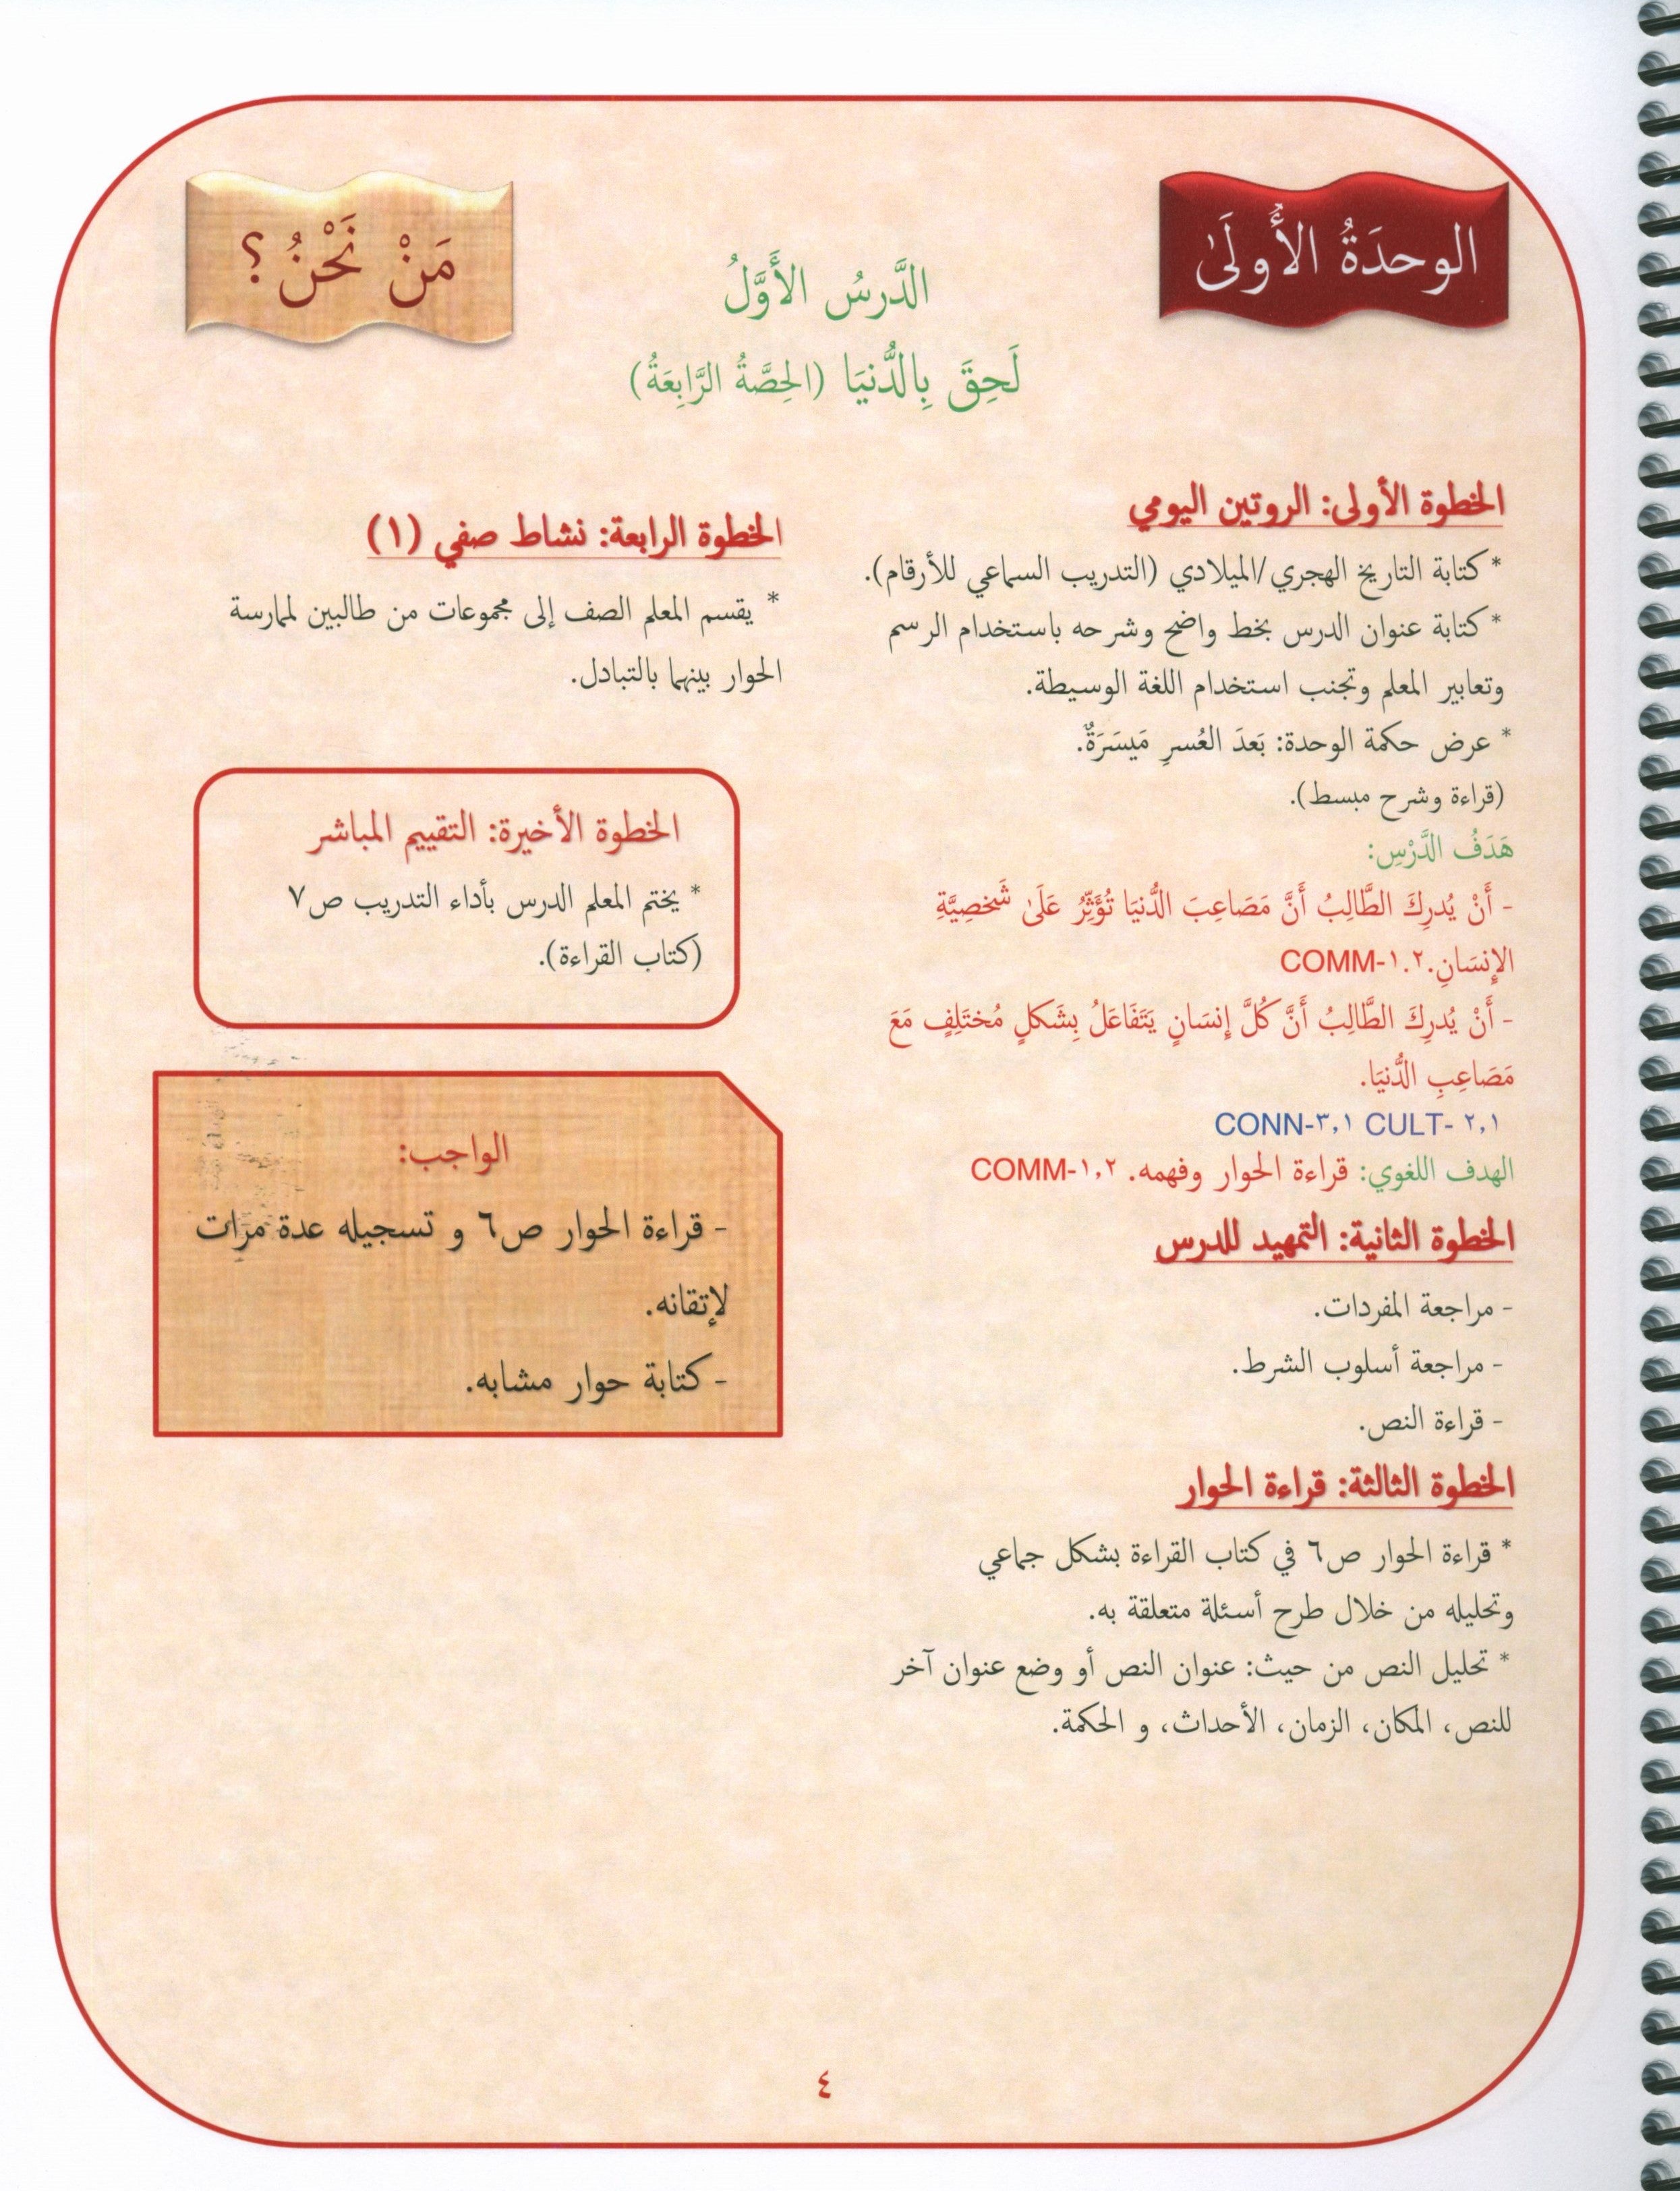 الوحدَةُ الأُولَىٰ
مَنْ نَحْنُ؟
الدَّرسُ الأَوَّلُ
لَحِقَ بِالدُّنيَا (الحِصَّةُ الرَّابِعَةُ)
الخطوة الأولى: الروتين اليومي
* كتابة التاريخ الهجري/الميلادي (التدريب السماعي للأرقام).
* كتابة عنوان الدرس بخط واضح وشرحه باستخدام الرسم
وتعابير المعلم وتجنب استخدام اللغة الوسيطة.
* عرض حكمة الوحدة: بَعدَ العُسرِ مَيسَرَةٌ.
(قراءة وشرح مبسط).
هَدَفُ الدَّرْسِ:
- أَنْ يُدرِكَ الطَّالِبُ أَنَّ مَصَاعِبَ الدُّنيَا تُؤَثِّرُ عَلَىٰ شَخصِيَّةِ
الإِنسَانِ.COMM-١.٢
- أَنْ يُدرِكَ الطَّالِبُ أَنَّ كُلَّ إِنسَانٍ يَتَفَاعَلُ بِشَكلٍ مُختَلِفٍ مَعَ
مَصَاعِبِ الدُّنيَا.
CONN-٣,١ CULT- ٢,١
الهدف اللغوي: قراءة الحوار وفهمه. COMM-١,٢
الخطوة الثانية: التمهيد للدرس
- مراجعة المفردات.
- مراجعة أسلوب الشرط.
- قراءة النص.
الخطوة الثالثة: قراءة الحوار
* قراءة الحوار ص٦ في كتاب القراءة بشكل جماعي
وتحليله من خلال طرح أسئلة متعلقة به.
* تحليل النص من حيث: عنوان النص أو وضع عنوان آخر
للنص، المكان، الزمان، الأحداث، و الحكمة.
الخطوة الرابعة: نشاط صفي (١)
* يقسم المعلم الصف إلى مجموعات من طالبين لممارسة
الحوار بينهما بالتبادل.
الخطوة الأخيرة: التقييم المباشر
* يختم المعلم الدرس بأداء التدريب ص٧
(كتاب القراءة).
الواجب:
- قراءة الحوار ص٦ و تسجيله عدة مرات
لإتقانه.
- كتابة حوار مشابه.
٤